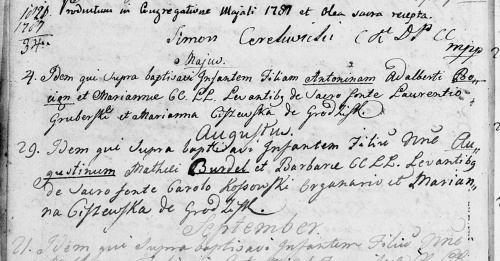 1021.
Productum in Congregatione Majali 1787 et Olea sacra recepta.
1787
34
Simon
mpp
Majus.
4. Idem qui Supra baptisavi Infantem Filiam Antoninam Adalberti
et Mariannæ CC. LL. Levantibg de Sacro fonte Laurentio
Gruberski et Marianna Ciszewska de Grodzisk.
Augustus.
29. Idem qui Supra baptisavi Infantem Filiū Nñe Au
gustinum Mathei Burdel et Barbaræ CC. LL. Levantibg
de Sacro fonte Carolo Kossowski Organario et Marian
na Ciszewska de Grodzisk.
September.
21. Idem qui Supra baptisavi Infantem Filiū Nñe